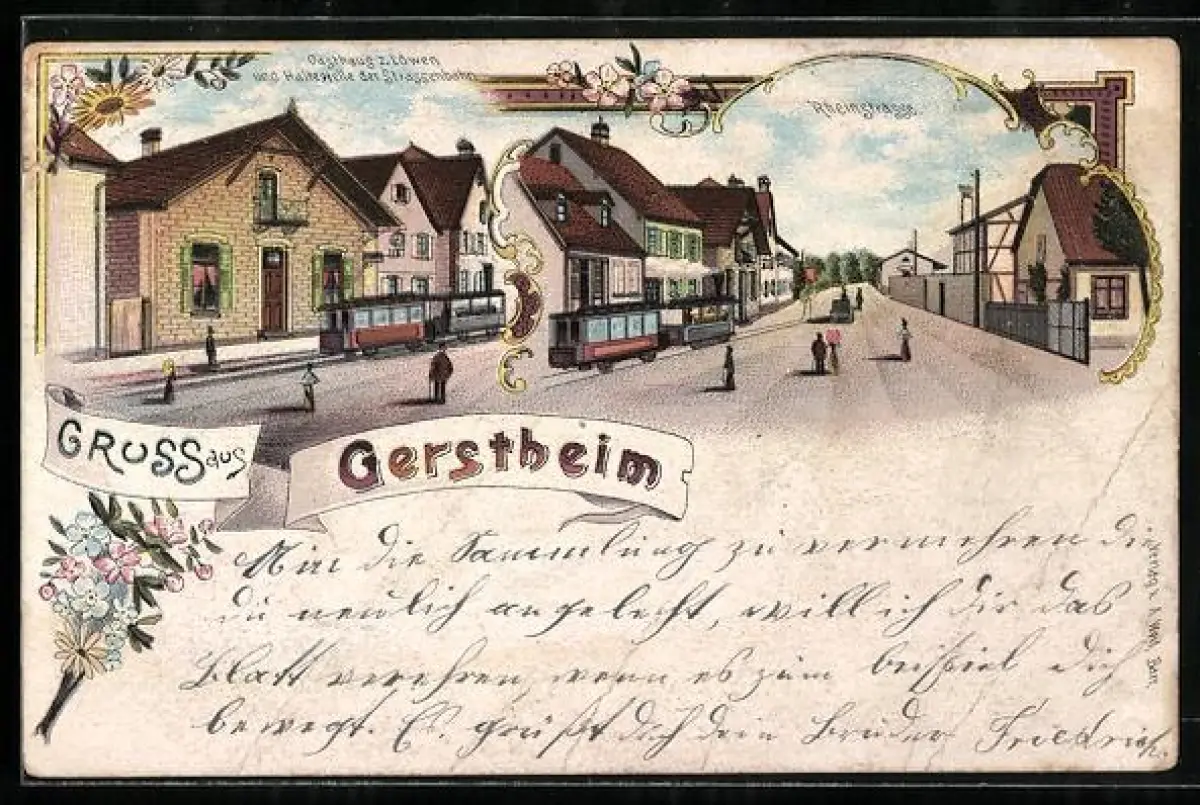 Gasthaus z. Löwen
und Haltestelle der Strassenbahn
Rheinstrasse
GRUSS aus
Gerstheim
die Sammlung zu vermehren die
du neulich angelecht, will ich dir das
Blatt verehren, wenn es zum beispiel dich
bewegt. Es grüßt dich dein Bruder Friedrich.